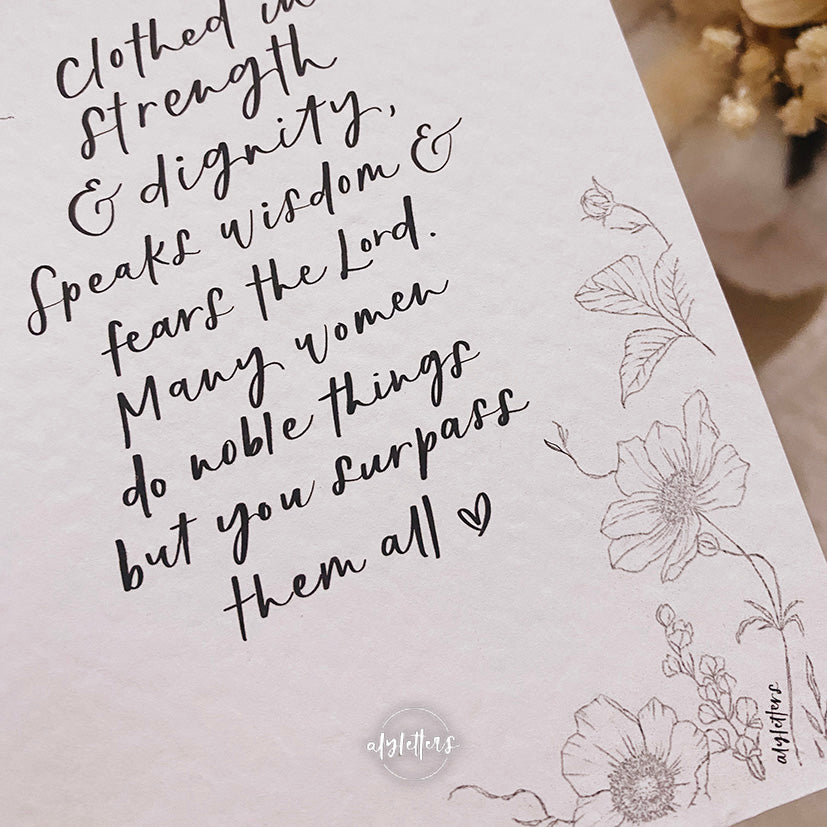 Clothed in
strength
& dignity,
Speaks wisdom &
fears the Lord.
Many women
do noble things
but you surpass
them all
alyletters
alyletters